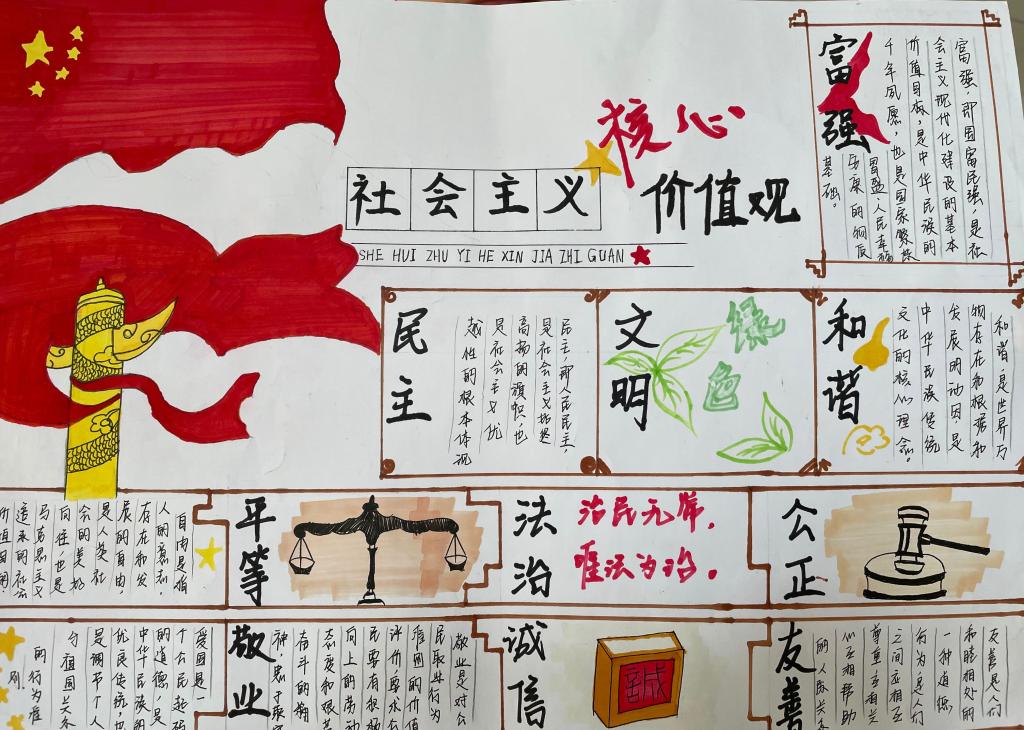 核心
社会主义
价值观
SHE HUI ZHU YI HE XIN JIA ZHI GUAN
富强
富强,即国富民强,是社
会主义现代化建设的基本
价值目标,是中华民族的
千年夙愿,也是国家繁荣
昌盛、人民幸福
安康的物质
基础。
民主
民主,即人民民主,
是社会主义始终
高扬的旗帜,也
是社会主义优
越性的根本体现
文明
绿色
和谐
和谐,是世界万
物存在和根据和
发展明动因,是
中华民族传统
文化的核心理念。
自由是指
人的意志,
存在和发
展的自由,
是人类社
会的美好
向往,也是
马克思主义
追求的社会
价值目标
平等
法治
治民无常,
唯法为治。
公正
爱国是一
个公民起码
的道德,是
中华民族的
优良传统,也
是调节个人
与祖国关系
的行为准
则
敬业
敬业是对公
民职业行为
准则的价值
评价,要求公
民要有积极
向上的劳动
态度和艰苦
奋斗的精
神,忠于职守
诚信
誠
友善
友善是人们
和睦相处的
一种道德
行为,是人们
之间互相
尊重互相关
心互相帮助
的人际关系